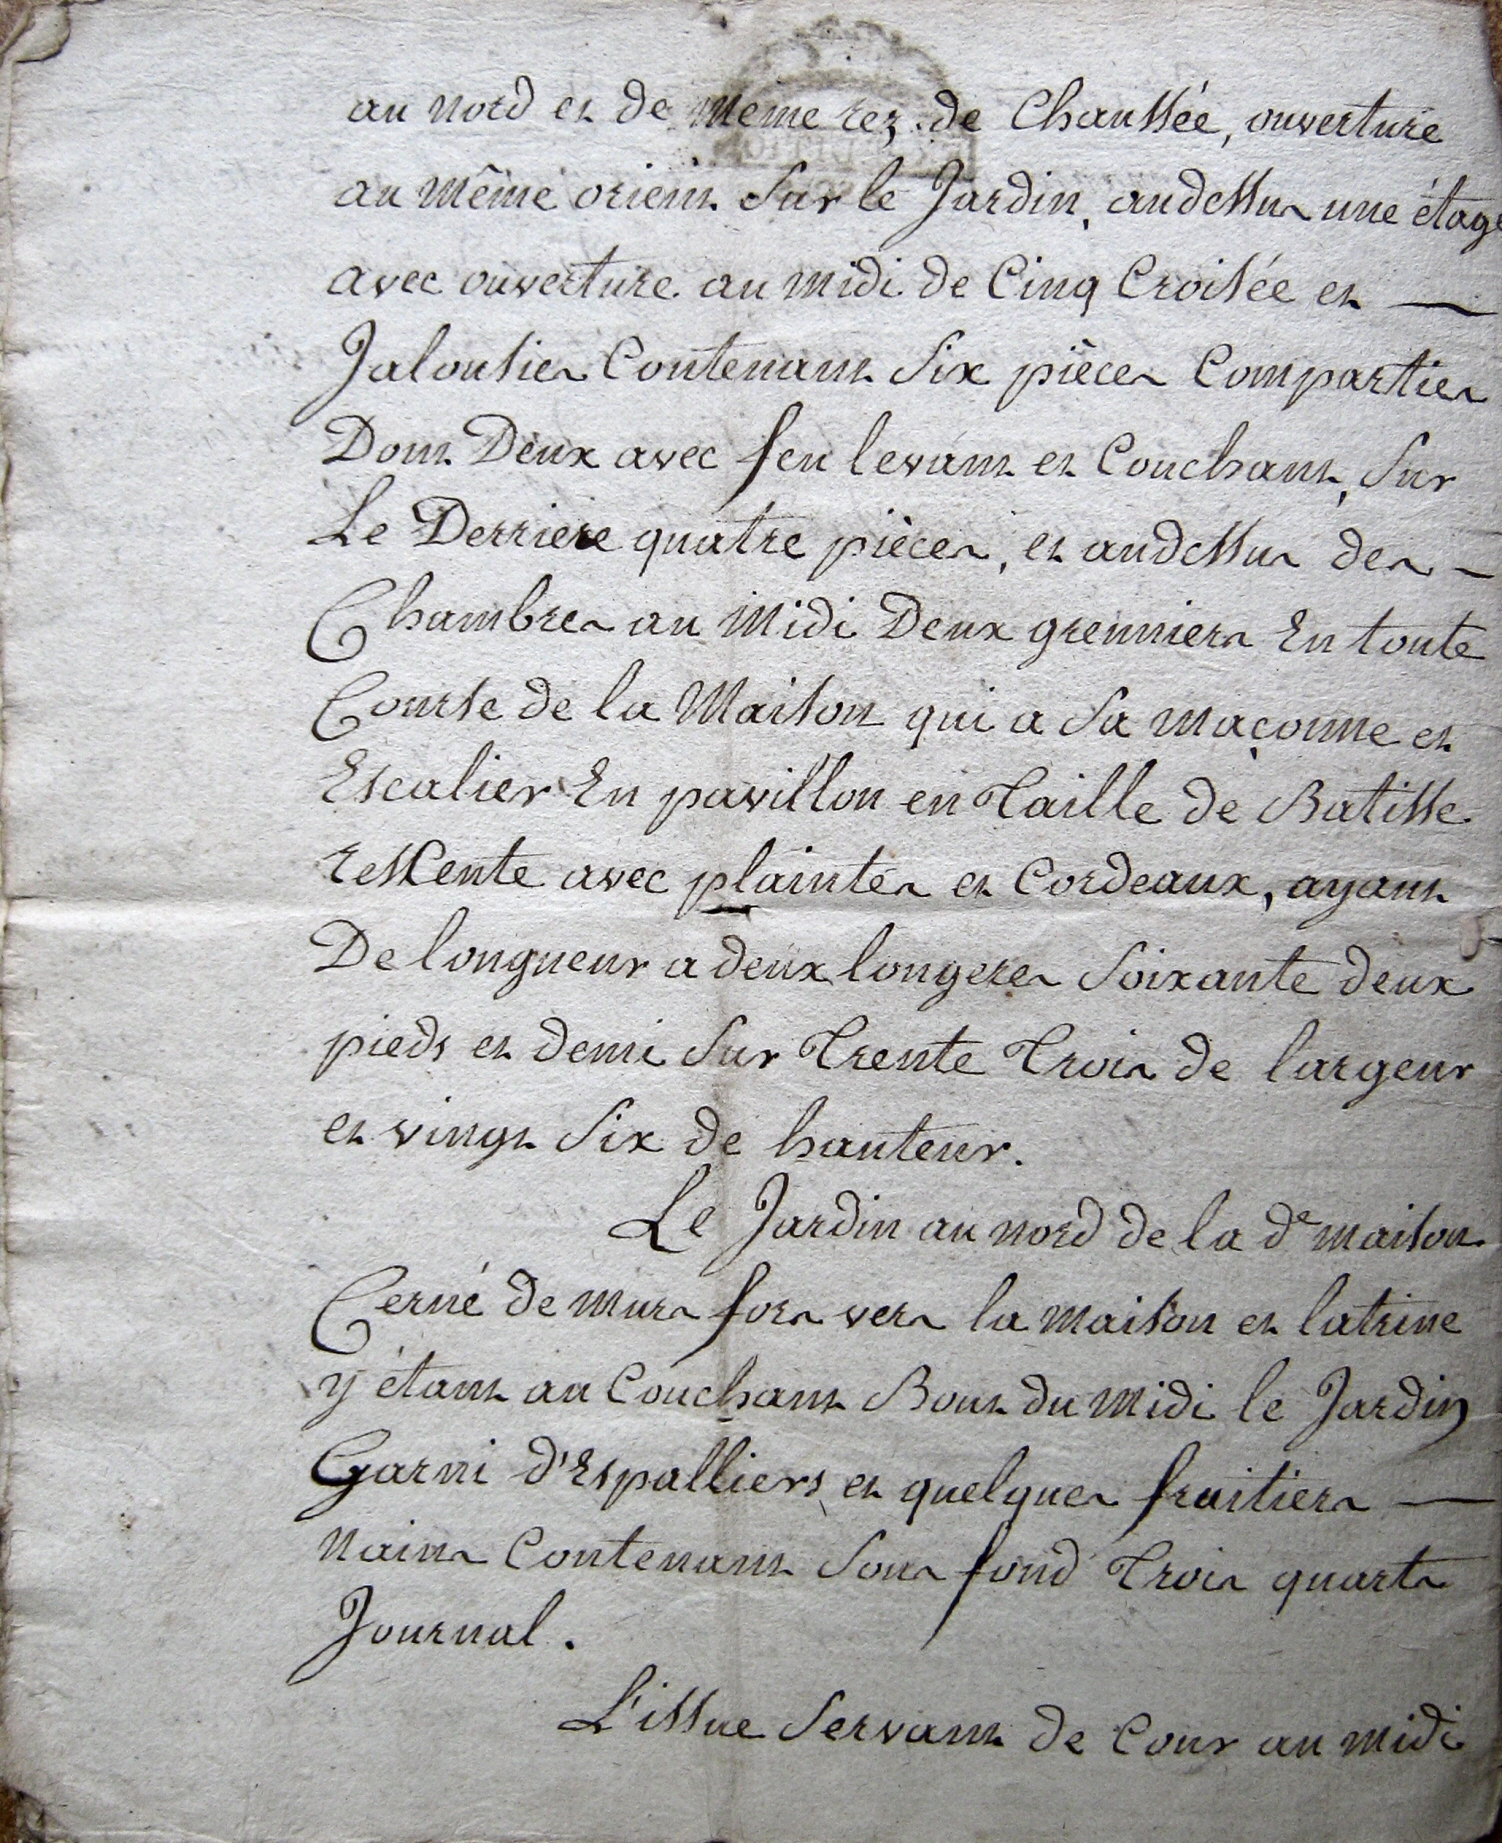 au nord et de meme rez de Chaussée, ouverture
au même orient Sur le Jardin, audessus une étage
avec ouverture au midi de Cinq Croisée et —
Jalousies Contenant Six pièces Comparties
Dont Deux avec feu levant et Couchant, Sur
Le Derriere quatre pièces, et audessus des —
Chambres au Midi Deux grenniers En toute
Course de la Maison qui a Sa maçonne et
Escalier En pavillon en Taille de Batisse
ressente avec plaintes et Cordeaux, ayant
De longueur a deux longeres Soixante deux
pieds et demi Sur Trente Trois de largeur
et vingt Six de hauteur.
Le Jardin au nord de la de maison
Cerné de murs fors vers la maison et latrine
y étant au Couchant Bout du Midi le Jardin
Garni d'Espalliers et quelques fruitiers —
Nains Contenant Sous fond Trois quarts
Journal.
L'issue Servant de Cour au midi